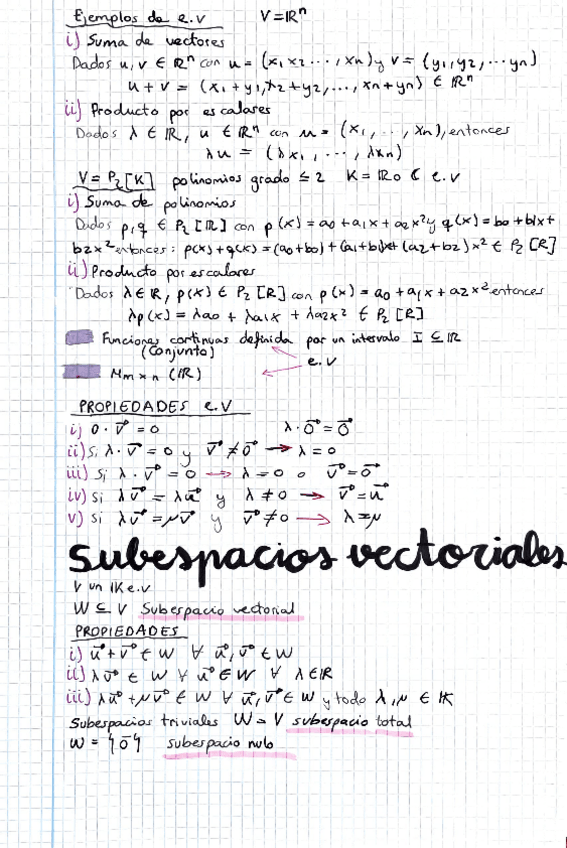 Ejemplos de e.v V=ℝⁿ
i) Suma de vectores
Dados u,v ∈ ℝⁿ con u = (x₁ x₂ ···, xn) y v = (y₁, y₂, ··· yn)
u + v = (x₁ + y₁, x₂ + y₂, ..., xn + yn) ∈ ℝⁿ
ii) Producto por escalares
Dados λ ∈ ℝ, u ∈ ℝⁿ con u = (x₁, ..., xn), entonces
λu = (λx₁, ···, λxn)
V = P₂[K] polinomios grado ≤ 2 K = ℝ o ℂ e.v
i) Suma de polinomios
Dados p,q ∈ P₂[ℝ] con p(x) = a₀ + a₁x + a₂x² y q(x) = b₀ + b₁x +
b₂x² entonces: p(x) + q(x) = (a₀+b₀) + (a₁+b₁)x + (a₂+b₂)x² ∈ P₂[ℝ]
ii) Producto por escalares
Dados λ ∈ ℝ, p(x) ∈ P₂[ℝ] con p(x) = a₀ + a₁x + a₂x² entonces
λp(x) = λa₀ + λa₁x + λa₂x² ∈ P₂[ℝ]
Funciones continuas definida por un intervalo I ⊆ ℝ
(Conjunto) e.v
Mm×n (ℝ)
PROPIEDADES e.v
i) 0 · v⃗ = 0 λ · 0⃗ = 0⃗
ii) Si λ · v⃗ = 0 y v⃗ ≠ 0⃗ → λ = 0
iii) Si λ · v⃗ = 0 → λ = 0 o v⃗ = 0⃗
iv) Si λv⃗ = λu⃗ y λ ≠ 0 → v⃗ = u⃗
v) Si λv⃗ = μv⃗ y v⃗ ≠ 0 → λ = μ
Subespacios vectoriales
V un IK e.v
W ⊆ V Subespacio vectorial
PROPIEDADES
i) u⃗ + v⃗ ∈ W ∀ u⃗, v⃗ ∈ W
ii) λu⃗ ∈ W ∀ u⃗ ∈ W ∀ λ ∈ ℝ
iii) λu⃗ + μv⃗ ∈ W ∀ u⃗, v⃗ ∈ W y todo λ, μ ∈ IK
Subespacios triviales W = V subespacio total
W = {0⃗} subespacio nulo